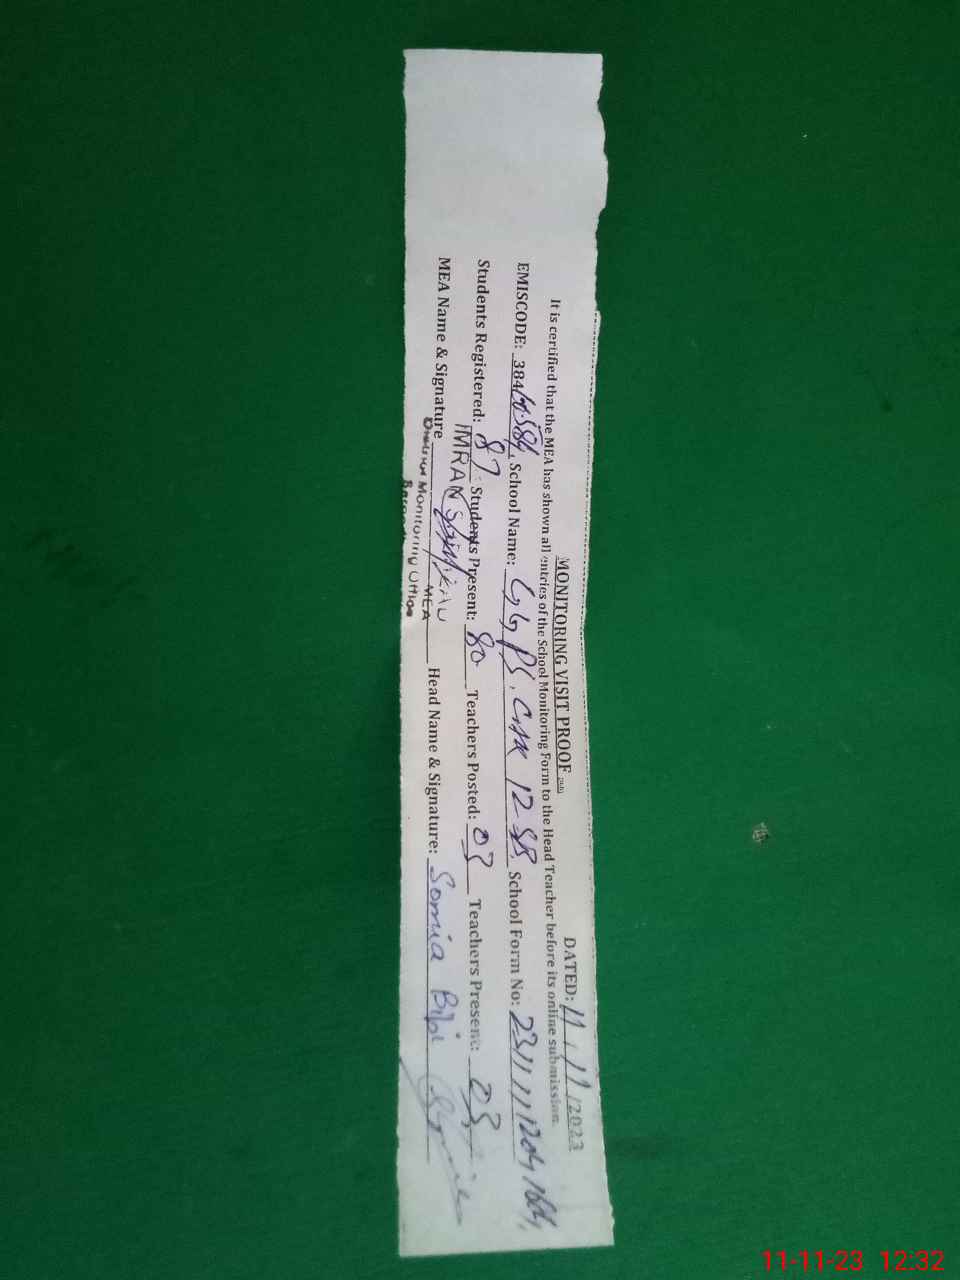 MONITORING VISIT PROOF
DATED: 11/11/2023
It is certified that the MEA has shown all entries of the School Monitoring Form to the Head Teacher before its online submission.
EMISCODE: 384 School Name: GGPS. Chak 12 SB School Form No:
Students Registered: 87 Students Present: 80 Teachers Posted: 03 Teachers Present: 03
MEA Name & Signature IMRAN Head Name & Signature: Somia Bibi
MEA
Monitoring Office
11-11-23 12:32